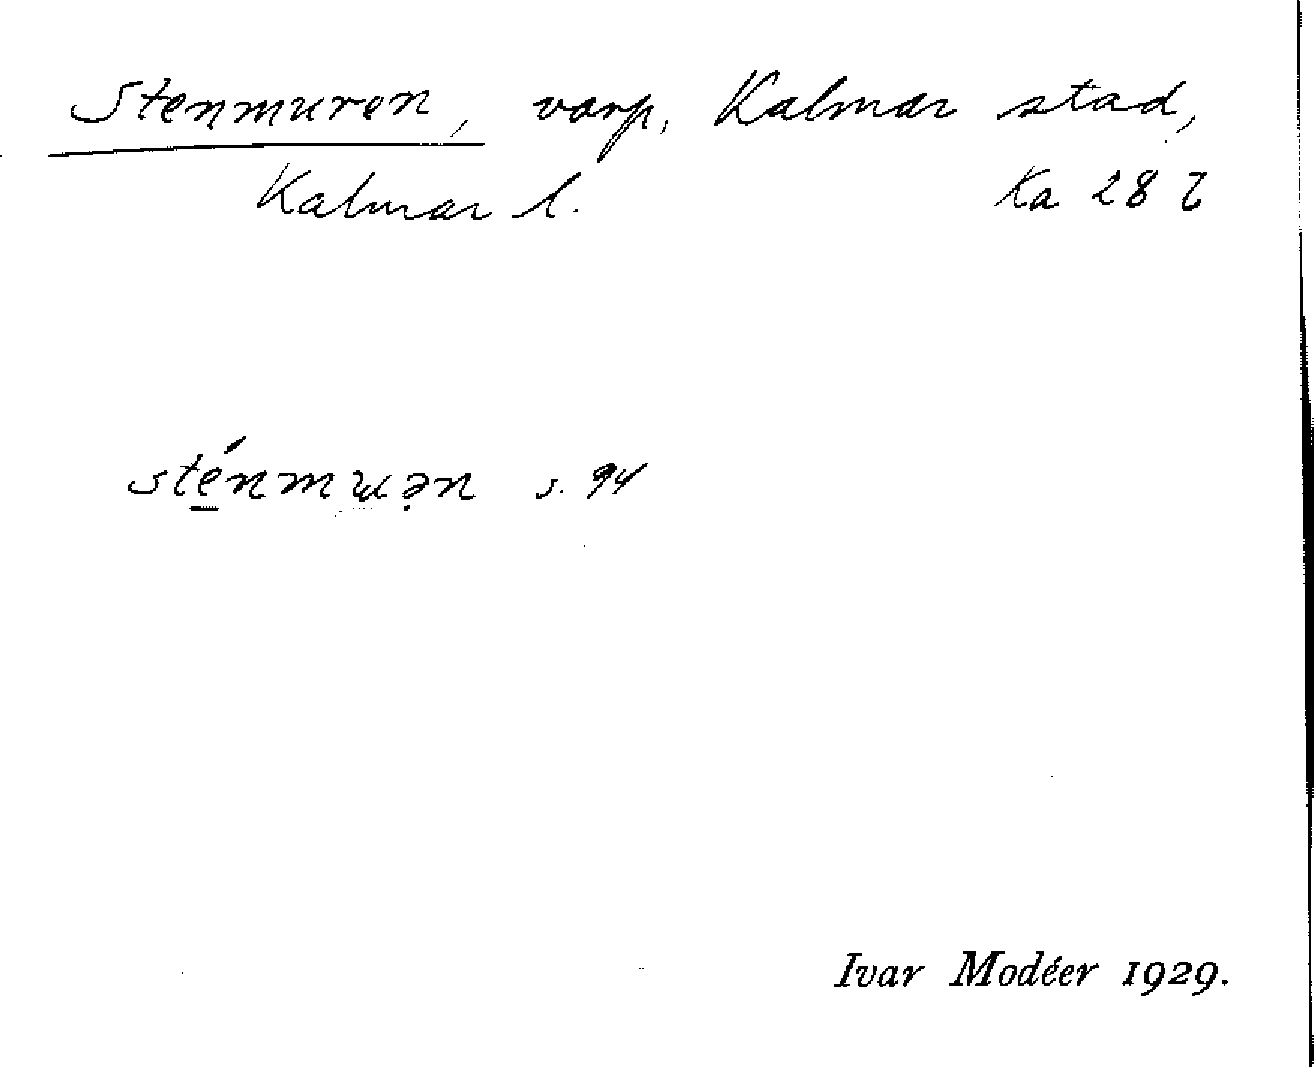 Stenmuren, varp, Kalmar stad,
Kalmar l. Ka 28
s. 94
Ivar Modéer 1929.